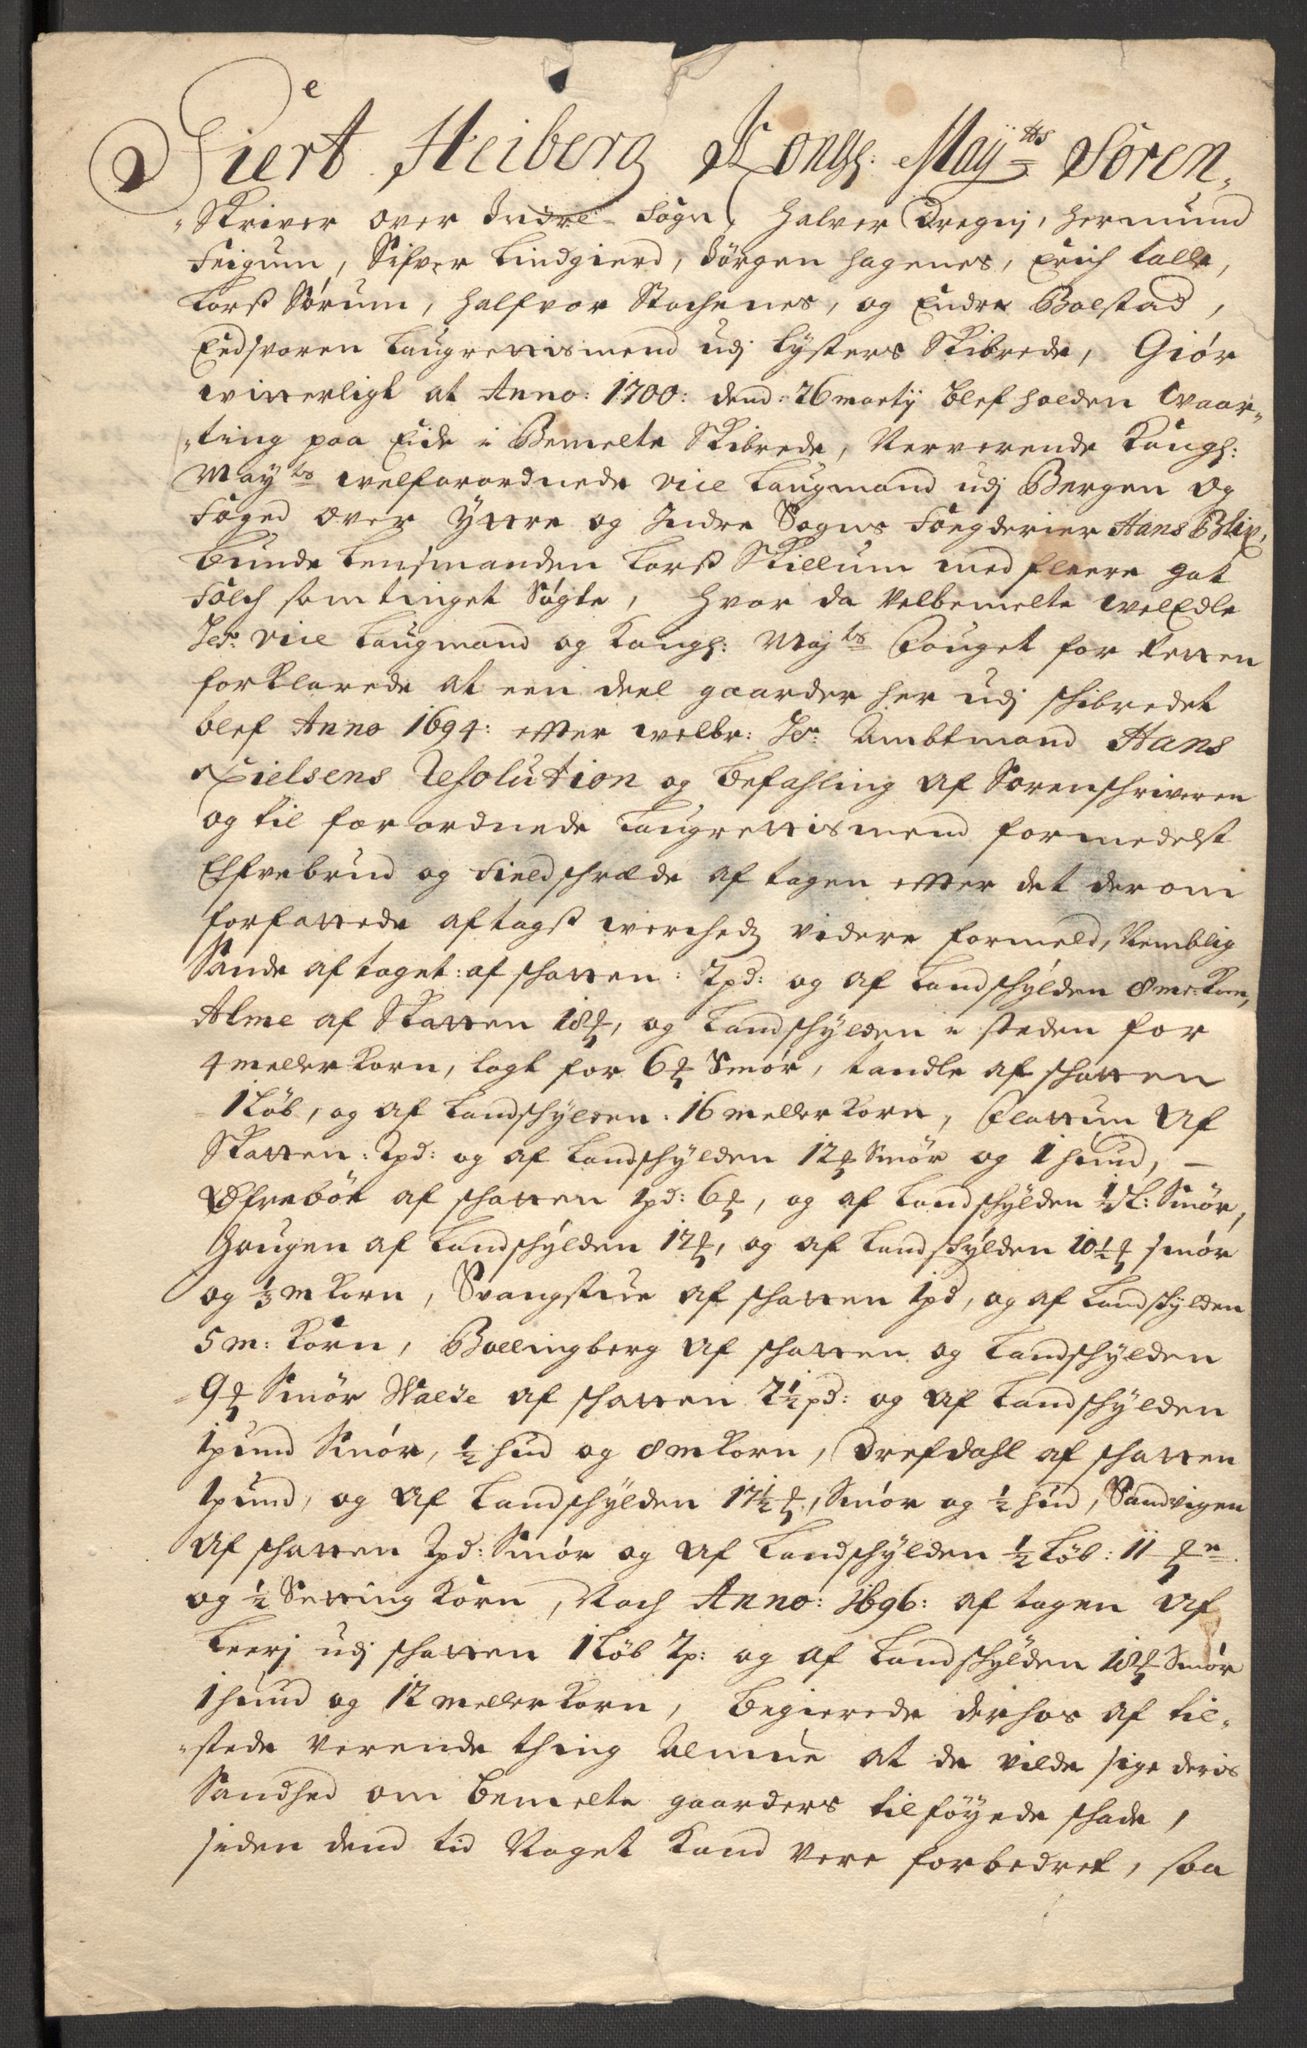 Giert Heiberg Kongl: May:ts Soren-
-Skriver over Indre Sogn, Halvor Kregnj, Hermund
Feigum, Sifver Lindgierd, Jørgen Hagenes, Erich Talle,
Larss Sørum, Halfvor Stochenes, og Endre Bolstad,
Eedsvoren Laugrettismend udj Lysters Skibrede, Giør
witterligt at Anno: 1700: dend: 26 martij blef holden Waar-
-ting paa Eide i Bemelte Skibrede, Nerverende Kongl:
May:ts welforordnede vice Laugmand udj Bergen og
Foged over Yttre og Indre Sogns Fogderier Hans Blix,
bunde Lensmanden Larss Skillum med fleere got
Folch som tinget Søgte, hvor da Velbemelte welEdle
Hr: vice Laugmand og Kongl: Maj:ts Fouget for Retten
forklarede at een deel gaarder her udj schibredet
blef Anno 1694: efter welbr: Hr: Ambtmand Hans
Nielsens Resolution og befahling af Sorenschriveren
og til forordnede Laugrettismend formedelst
Elfvebrud og Fieldschræde aftagen efter det derom
forfattede aftagss werchedz videre formeld, Nemblig
Sande aftaget: af schatten: 2pd: og af Landschylden 8 mr: Korn,
Alme af Skatten 18 ♃, og Landschylden i steden for
4 meller korn, lagt for 6 ♃ Smør, tandle af schatten
1 Løb, og af Landschylden: 16 meller korn, Flattum Af
Skatten: 2pd: og af Landschylden 12 ♃ Smør og 1 huud, -
Øfrebøe af schatten 1pd: 6 ♃, og af Landschylden ½ L: Smør,
Hougen af Landschylden 12 ♃, og af Landschylden 10½ ♃ smør
og ⅓ m korn, Svangstue af schatten 1pd, og af Landschylden
5 m: Korn, Bollingberg af schatten og Landschylden
9 ♃ Smør Walde af schatten 2½ pd: og af Landschylden
1 pund Smør, ½ hud og 8 m korn, Drefdahl af schatten
1 pund, og Af Landschylden 17½ ♃, Smør og ½ hud, Sandvigen
Af schatten 2pd: Smør og Af Landschylden ½ Løb: 11 ♃
og ½ Setting Korn, Noch Anno: 1696: aftagen Af
Leerj udj schatten 1 Løb 2p: og af Landschylden 18 ♃ Smør
1 huud og 12 meller korn, begierede derhos af til-
-stede verende thing Almue at de vilde sige deris
Sandhed om bemelte gaarders tilføyede schade,
siden dend tid Noget Kand vere forbedret, saa